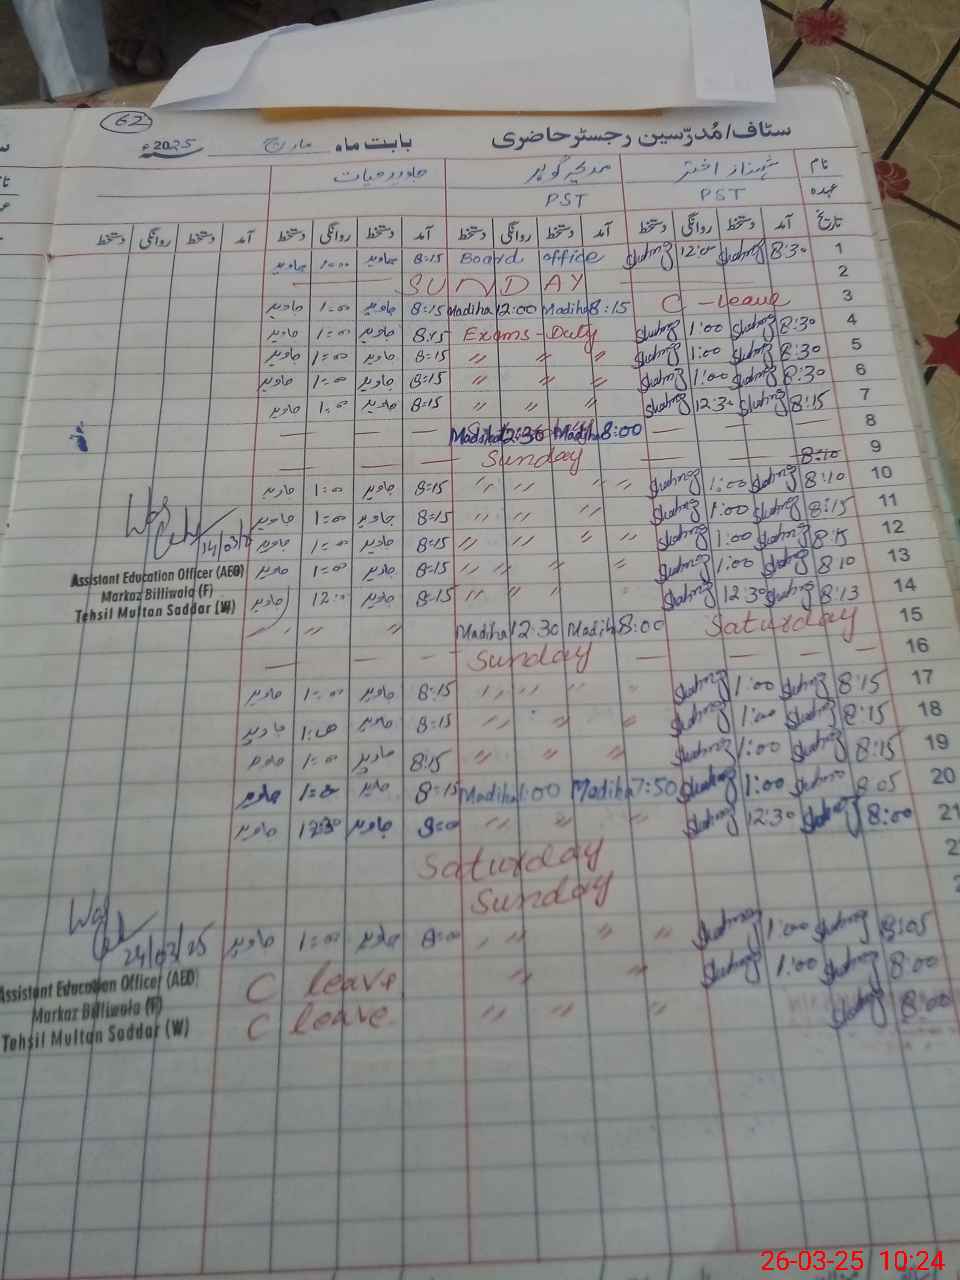 62
سٹاف/مُدرّسین رجسٹر حاضری بابت ماہ مارچ 2025ء
نام شہناز اختر مدیحہ گوہر جاوید حیات
عہدہ PST PST
تاریخ آمد دستخط روانگی دستخط آمد دستخط روانگی دستخط آمد دستخط روانگی دستخط آمد دستخط روانگی دستخط
1 8:30 12:00 Board office 8=15 جاوید 1=00 جاوید
2 SUNDAY
3 C-leave 8:15 Madiha 12:00 Madiha 8=15 جاوید 1=00 جاوید
4 8:30 1:00 Exams-Duty 8:15 جاوید 1=00 جاوید
5 8:30 1:00 " " " 8=15 جاوید 1=00 جاوید
6 8:30 1:00 " " " 8=15 جاوید 1=00 جاوید
7 8:15 12:30 " " " 8=15 جاوید 1=00 جاوید
8 — — — — 8:00 Madiha 12:30 Madiha — — — —
9 8:10 Sunday — — — —
10 8:10 1:00 " " " " 8=15 جاوید 1=00 جاوید
11 8:15 1:00 " " " 8=15 جاوید 1=00 جاوید
12 8:15 1:00 " " " " 8=15 جاوید 1=00 جاوید
13 8:10 1:00 " " " " 8=15 جاوید 1=00 جاوید
14 8:13 12:30 " " " " 8=15 جاوید 12:00 جاوید
14/03/25
Assistant Education Officer (AEO)
Markaz Billiwala (F)
Tehsil Multan Saddar (W)
15 Saturday 8:00 Madiha 12:30 Madiha " " "
16 — — — — Sunday — — —
17 8:15 1:00 " " " " 8=15 جاوید 1=00 جاوید
18 8:15 1:00 " " " 8=15 جاوید 1:00 جاوید
19 8:15 1:00 " " " 8:15 جاوید 1=00 جاوید
20 8:05 1:00 7:50 Madiha 1:00 Madiha 8=15 جاوید 1=00 جاوید
21 8:00 12:30 " " " 8=00 جاوید 12:30 جاوید
Saturday
Sunday
8:05 1:00 " " " " 8=00 جاوید 1=00 جاوید
24/03/25
8:00 1:00 " " C leave
8:00 " " " " C leave
Assistant Education Officer (AEO)
Markaz Billiwala (F)
Tehsil Multan Saddar (W)
26-03-25 10:24